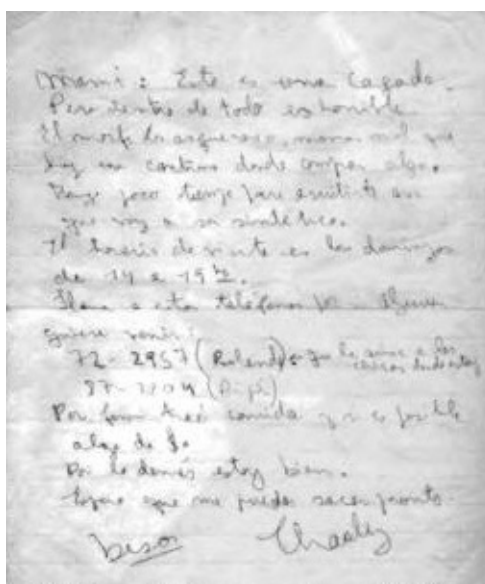 Mami: Esto es una cagada.
Pero dentro de todo es horrible
El morfi es asqueroso, menos mal que
hay una cantina donde comprar algo.
Tengo poco tiempo para escribirte así
que voy a ser sintético.
El horario de visita es los domingos
de 14 a 15 hs.
Llamá a estos teléfonos por si alguien
quiere venir:
72-2957 (Rolando) que le avise a los chicos
(Pipi)
Por favor traé comida y si es posible
algo de $.
Por lo demás estoy bien.
Espero que me puedas sacar pronto.
besos Charly